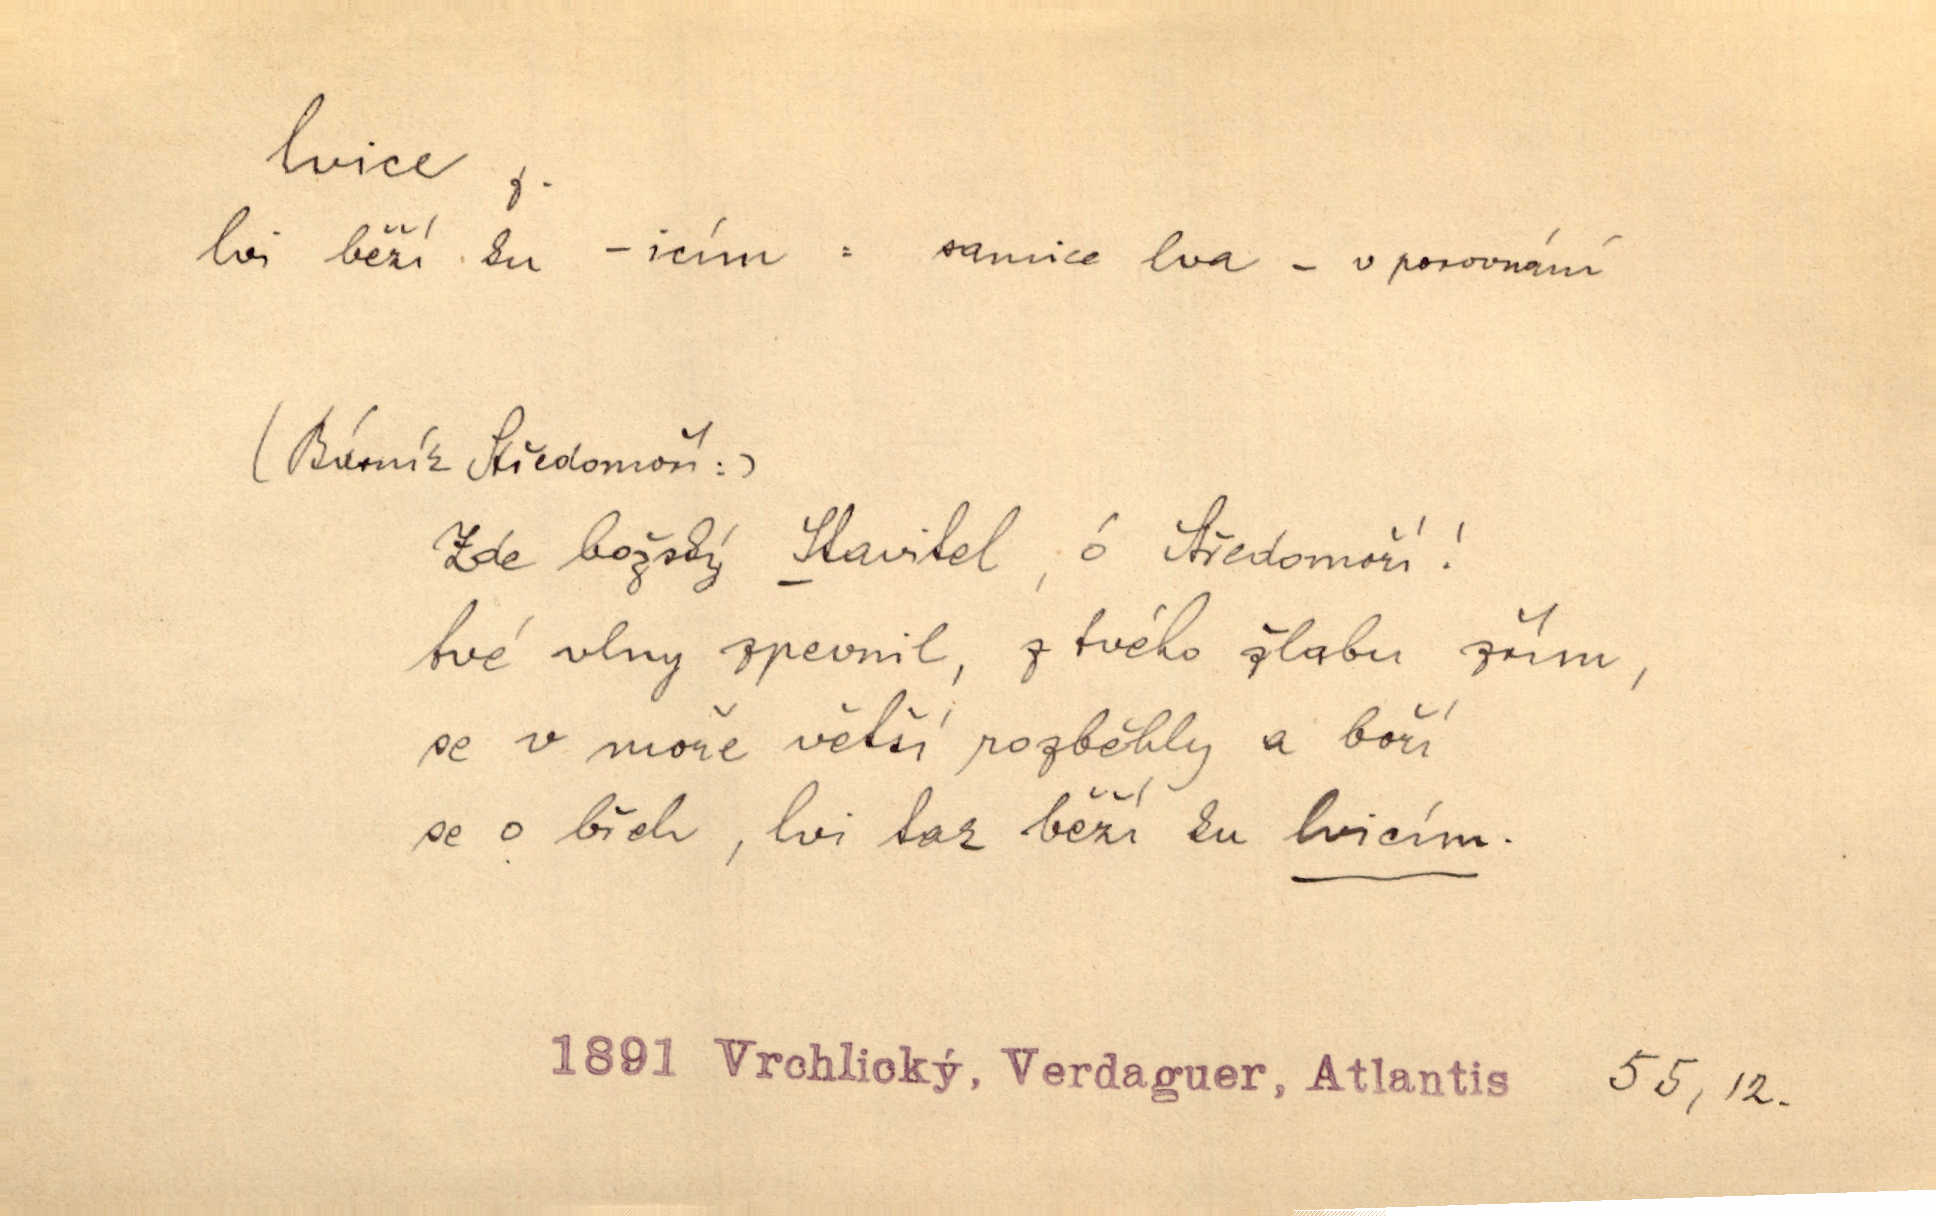 lvice ž.
lvi běží ku -icím = samice lva - v porovnání
(Básník Středomoří:)
Zde božský Stavitel, ó Středomoří!
tvé vlny zpevnil, z tvého žlabu zřím,
se v moře větší rozběhly a boří
se o břeh, lvi tak běží ku lvicím.
1891 Vrchlický, Verdaguer, Atlantis 55, 12.